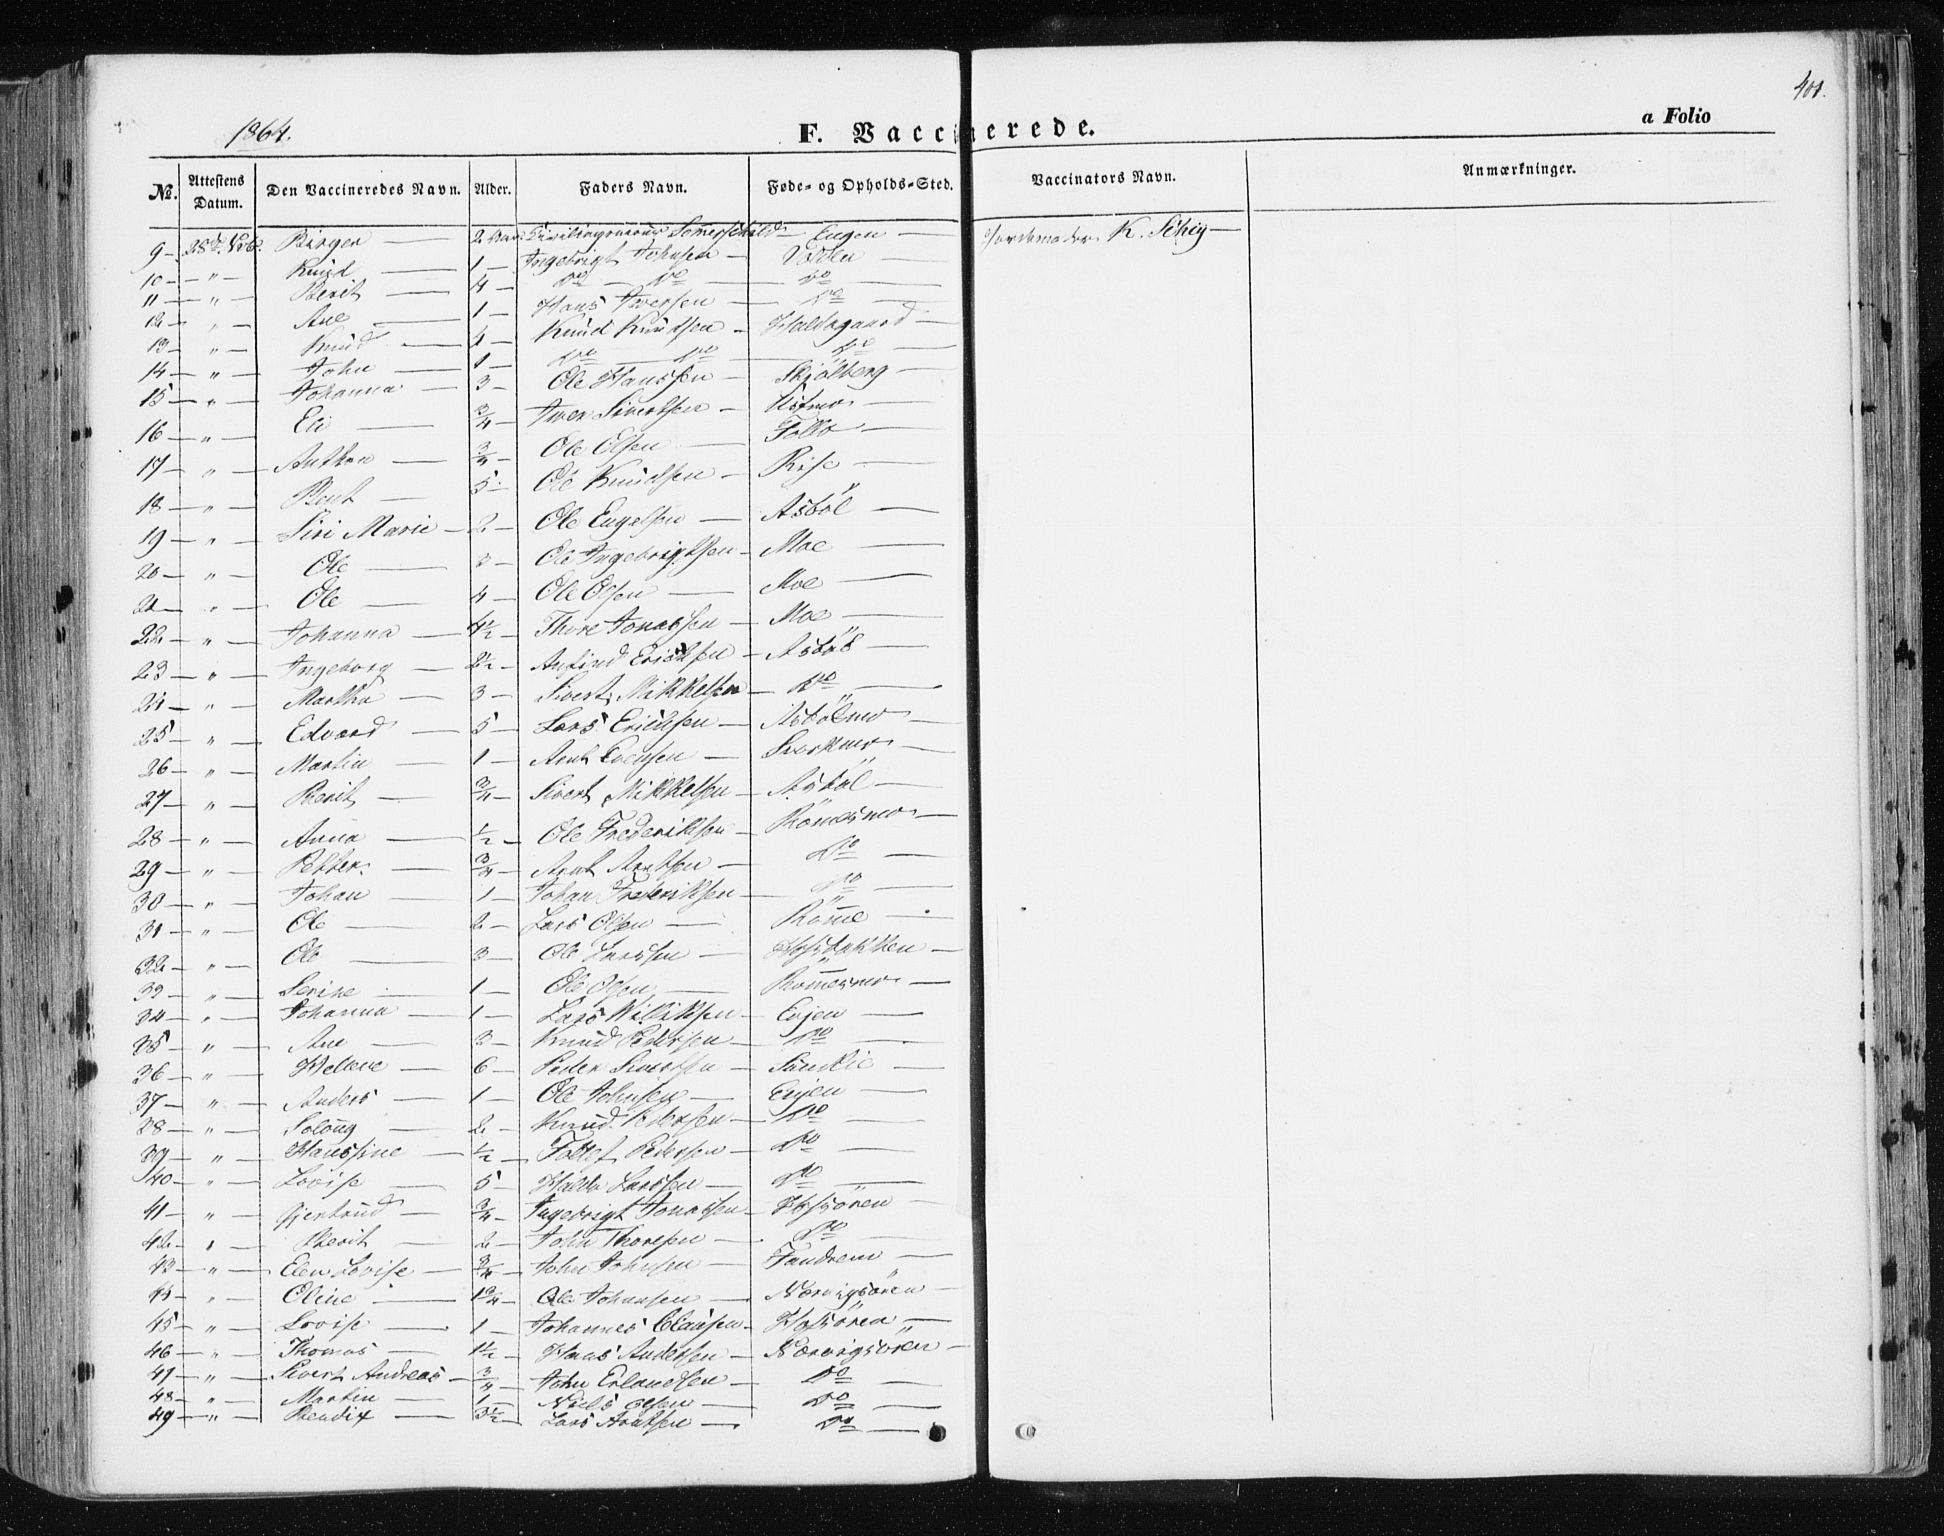 401.
1864. F. Vaccinerede. a Folio
№. Attestens Datum. Den Vaccineredes Navn. Alder. Faders Navn. Føde- og Opholds-Sted. Vaccinators Navn. Anmærkninger.
9 — Birger — 2 — Eugen — Jordemoder K. Schey —
10 — " — Knud — 1 — Ingebrigt Johnsen —
11 — " — Berit — 4 — do — do — do —
12 — " — Ane — 1 — Hans Iversen — do —
13 — " — Knud — 4 — Knud Knudsen —
14 — " — John — 1 — do — do — do —
15 — " — Johanna — 3 — Ole Hanssen — Skjölberg —
16 — " — Eli — 3/4 — Iver Sivertsen —
17 — " — Anthon — 3/4 — Ole Olsen — Follo —
18 — " — Bent — 5 — Ole Knudsen — Rise —
19 — " — Siri Marie — 2 — Ole Engelsen — Asböl —
20 — " — Ole — 3 — Ole Ingebrigtsen — Moe —
21 — " — Ole — 4 — Ole Olsen — Moe —
22 — " — Johanna — 4½ — Thore Jonassen — Moe —
23 — " — Ingeborg — 2½ — Anfind Ericksen — Asböl —
24 — " — Martha — 3 — Sivert Mikkelsen — do —
25 — " — Edvard — 5 — Lars Ericksen — Asbölmo —
26 — " — Martin — 1 — Arnt Evensen —
27 — " — Berit — 3/4 — Sivert Mikkelsen — Asböl —
28 — " — Anna — ½ — Ole Frederiksen — Römesmo —
29 — " — Petter — 3/4 — Arnt Arntsen — do —
30 — " — Johan — 1 — Johan Frederiksen — do —
31 — " — Ole — 2 — Lars Olsen — Römme —
32 — " — Ole — 3 — Ole Larssen — Hofsbakken —
33 — " — Serine — 1 — Ole Olsen — Römmesmo —
34 — " — Johanna — 1 — Lars Williksen — Evjen —
35 — " — Ane — 3 — Knud Pedersen — do —
36 — " — Helene — 6 — Peder Sivertsen —
37 — " — Anders — 1 — Ole Johnsen — Evjen —
38 — " — Solöug — 2 — Knud Pedersen — do —
39 — " — Hanssine — ½ — Tollef Pedersen — do —
40 — " — Lovise — 5 — Haldo Larssen — do —
41 — " — Gjertrud — 3/4 — Ingebrigt Jonassen — Hofsören —
42 — " — Berit — 2 — John Thoresen — do —
43 — " — Elen Lovise — 3/4 — John Johnsen — Fandrem —
44 — " — Oline — 1 3/4 — Ole Johansen — Nærvigsören —
45 — " — Lovise — 1 — Johannes Clausen — Hofsören —
46 — " — Thomas — 1½ — Hans Andersen — Nærvigsören —
47 — " — Sivert Andreas — 3/4 — John Erlandsen — do —
48 — " — Martin — 1 — Niels Olsen — do —
49 — " — Bendix — 3½ — Lars Arntsen — do —